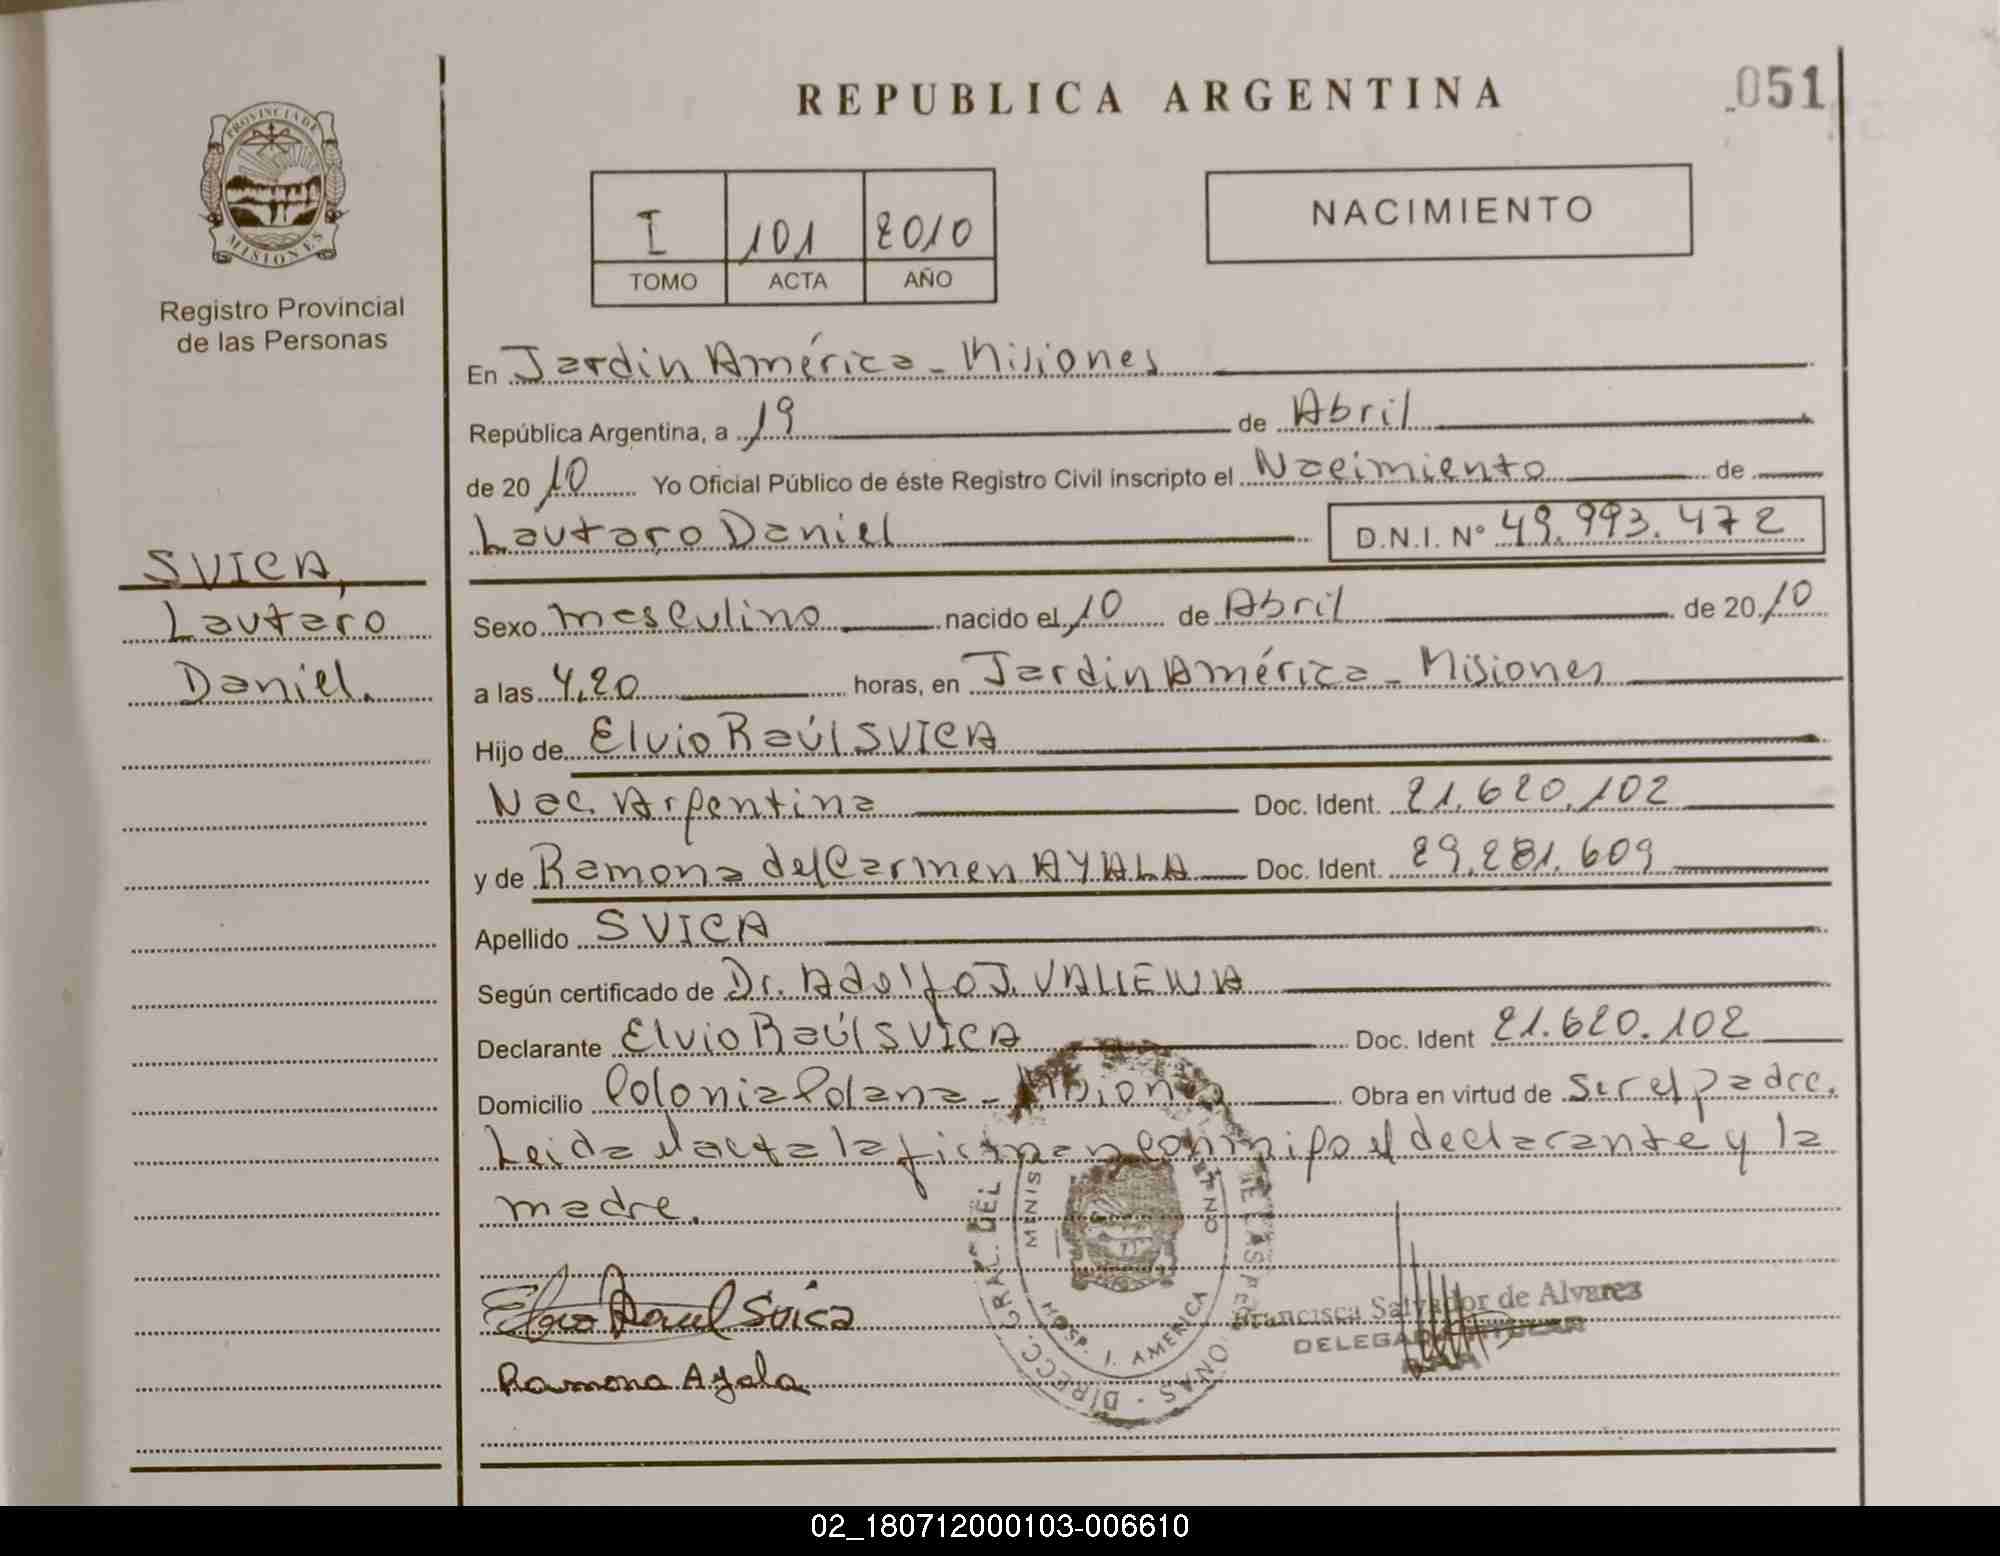 REPUBLICA ARGENTINA
051
PROVINCIA DE
MISIONES
Registro Provincial
de las Personas
I 101 2010
TOMO ACTA AÑO
NACIMIENTO
SVICA,
Lautaro
Daniel.
En Jardin América - Misiones
República Argentina, a 19 de Abril
de 2010 Yo Oficial Público de éste Registro Civil inscripto el Nacimiento de
Lautaro Daniel D.N.I. Nº 49.993.472
Sexo masculino nacido el 10 de Abril de 2010
a las 4,20 horas, en Jardin América - Misiones
Hijo de Elvio Raúl SVICA
Nac. Argentina Doc. Ident. 21.620.102
y de Ramona del Carmen AYALA Doc. Ident. 29.281.609
Apellido SVICA
Según certificado de Dr. Adolfo J.
Declarante Elvio Raúl SVICA Doc. Ident 21.620.102
Domicilio Colonia Polana - Misiones Obra en virtud de ser el padre.
Leida el acta la firman conmigo el declarante y la
madre.
Elvio Raul Svica
Ramona Ayala
DIRECC. GRAL. DEL DE LAS
MINIS
HOSP. J. AMERICA
Francisca Salvador de Alvarez
DELEGADA TITULAR
02_180712000103-006610